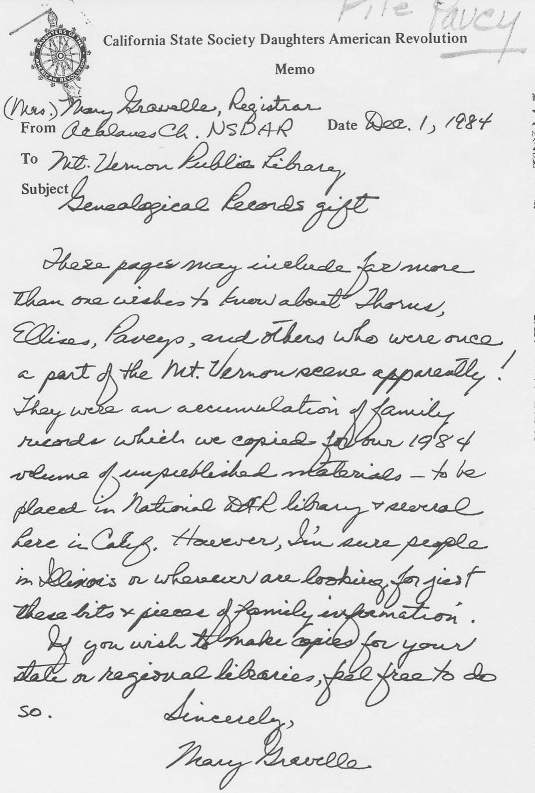 File Pavey
California State Society Daughters American Revolution
Memo
(Mrs.) Mary Gravelle, Registrar
From Acalanes Ch. NSDAR Date Dec. 1, 1984
To Mt. Vernon Public Library
Subject Genealogical Records gift
These pages may include far more
than one wishes to know about Thorns,
Ellises, Paveys, and others who were once
a part of the Mt. Vernon scene apparently!
They were an accumulation of family
records which we copied for our 1984
volume of unpublished materials – to be
placed in National DAR library & several
here in Calif. However, I'm sure people
in Illinois or wherever are looking for just
these bits & pieces of family information.
If you wish to make copies for your
state or regional libraries, feel free to do
so.
Sincerely,
Mary Gravelle